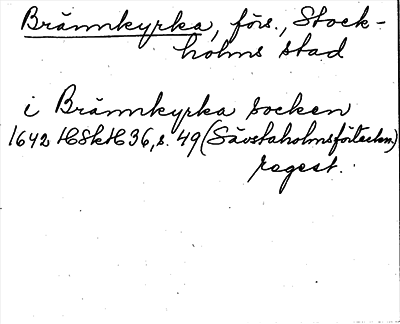 Brännkyrka, förs., Stock-
holms stad
i Brännkyrka socken
1642 HSkH 36, s. 49 (Sävstaholmsförteckn.)
regest.